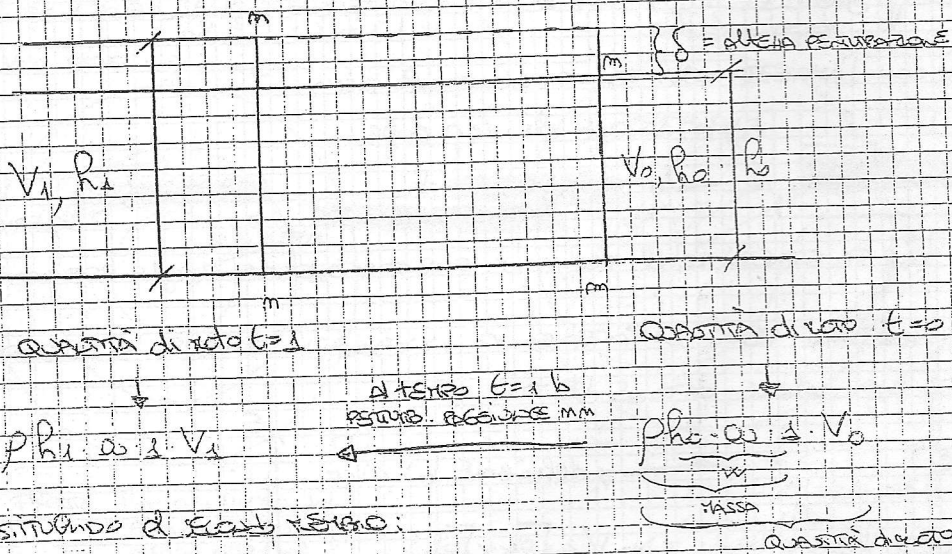 m
m } δ = ALTEZZA PERTURBAZIONE
V1, h1
V0, h0 h0
m
m
QUANTITÀ di MOTO t=1
QUANTITÀ di MOTO t=0
Al TEMPO t=1 la
PERTURB. RAGGIUNGE mm
ρ h1 · a · 1 · V1
ρ h0 · a · 1 · V0
W
MASSA
QUANTITÀ di MOTO